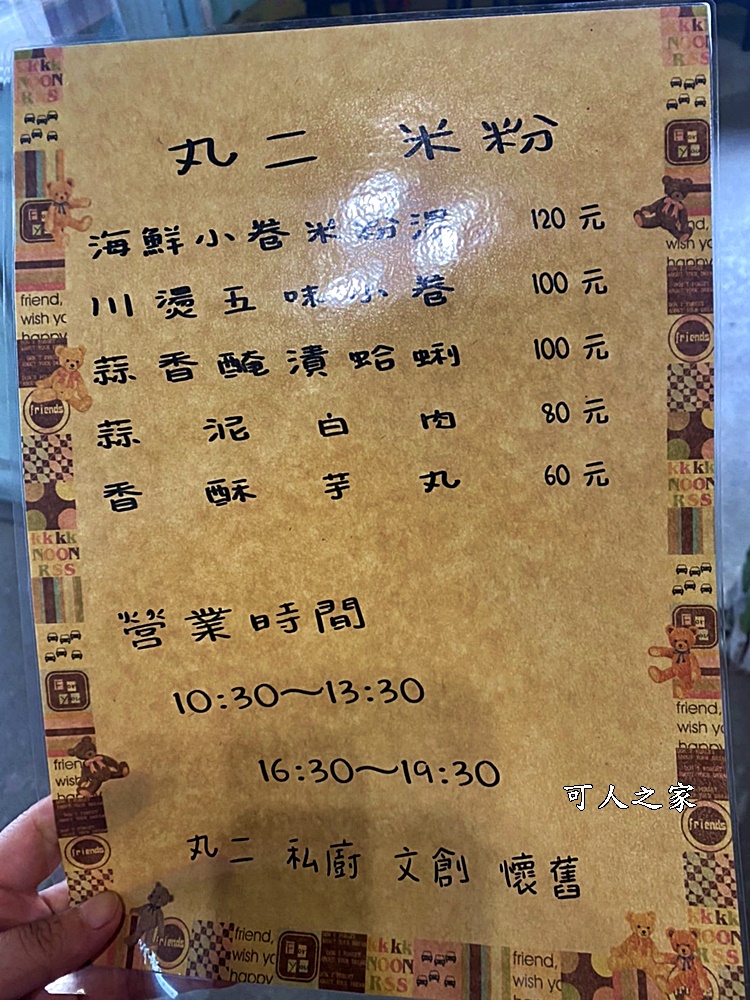 丸二 米粉
海鮮小卷米粉湯 120元
川燙五味小卷 100元
蒜香醃漬蛤蜊 100元
蒜泥白肉 80元
香酥芋丸 60元
營業時間
10:30～13:30
16:30～19:30
丸二 私廚 文創 懷舊
可人之家
kkkk
NOON
RSS
friend,
wish yo
happy
friends